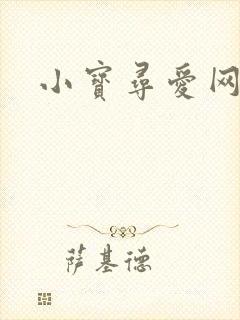 小寶尋愛网
萨基德